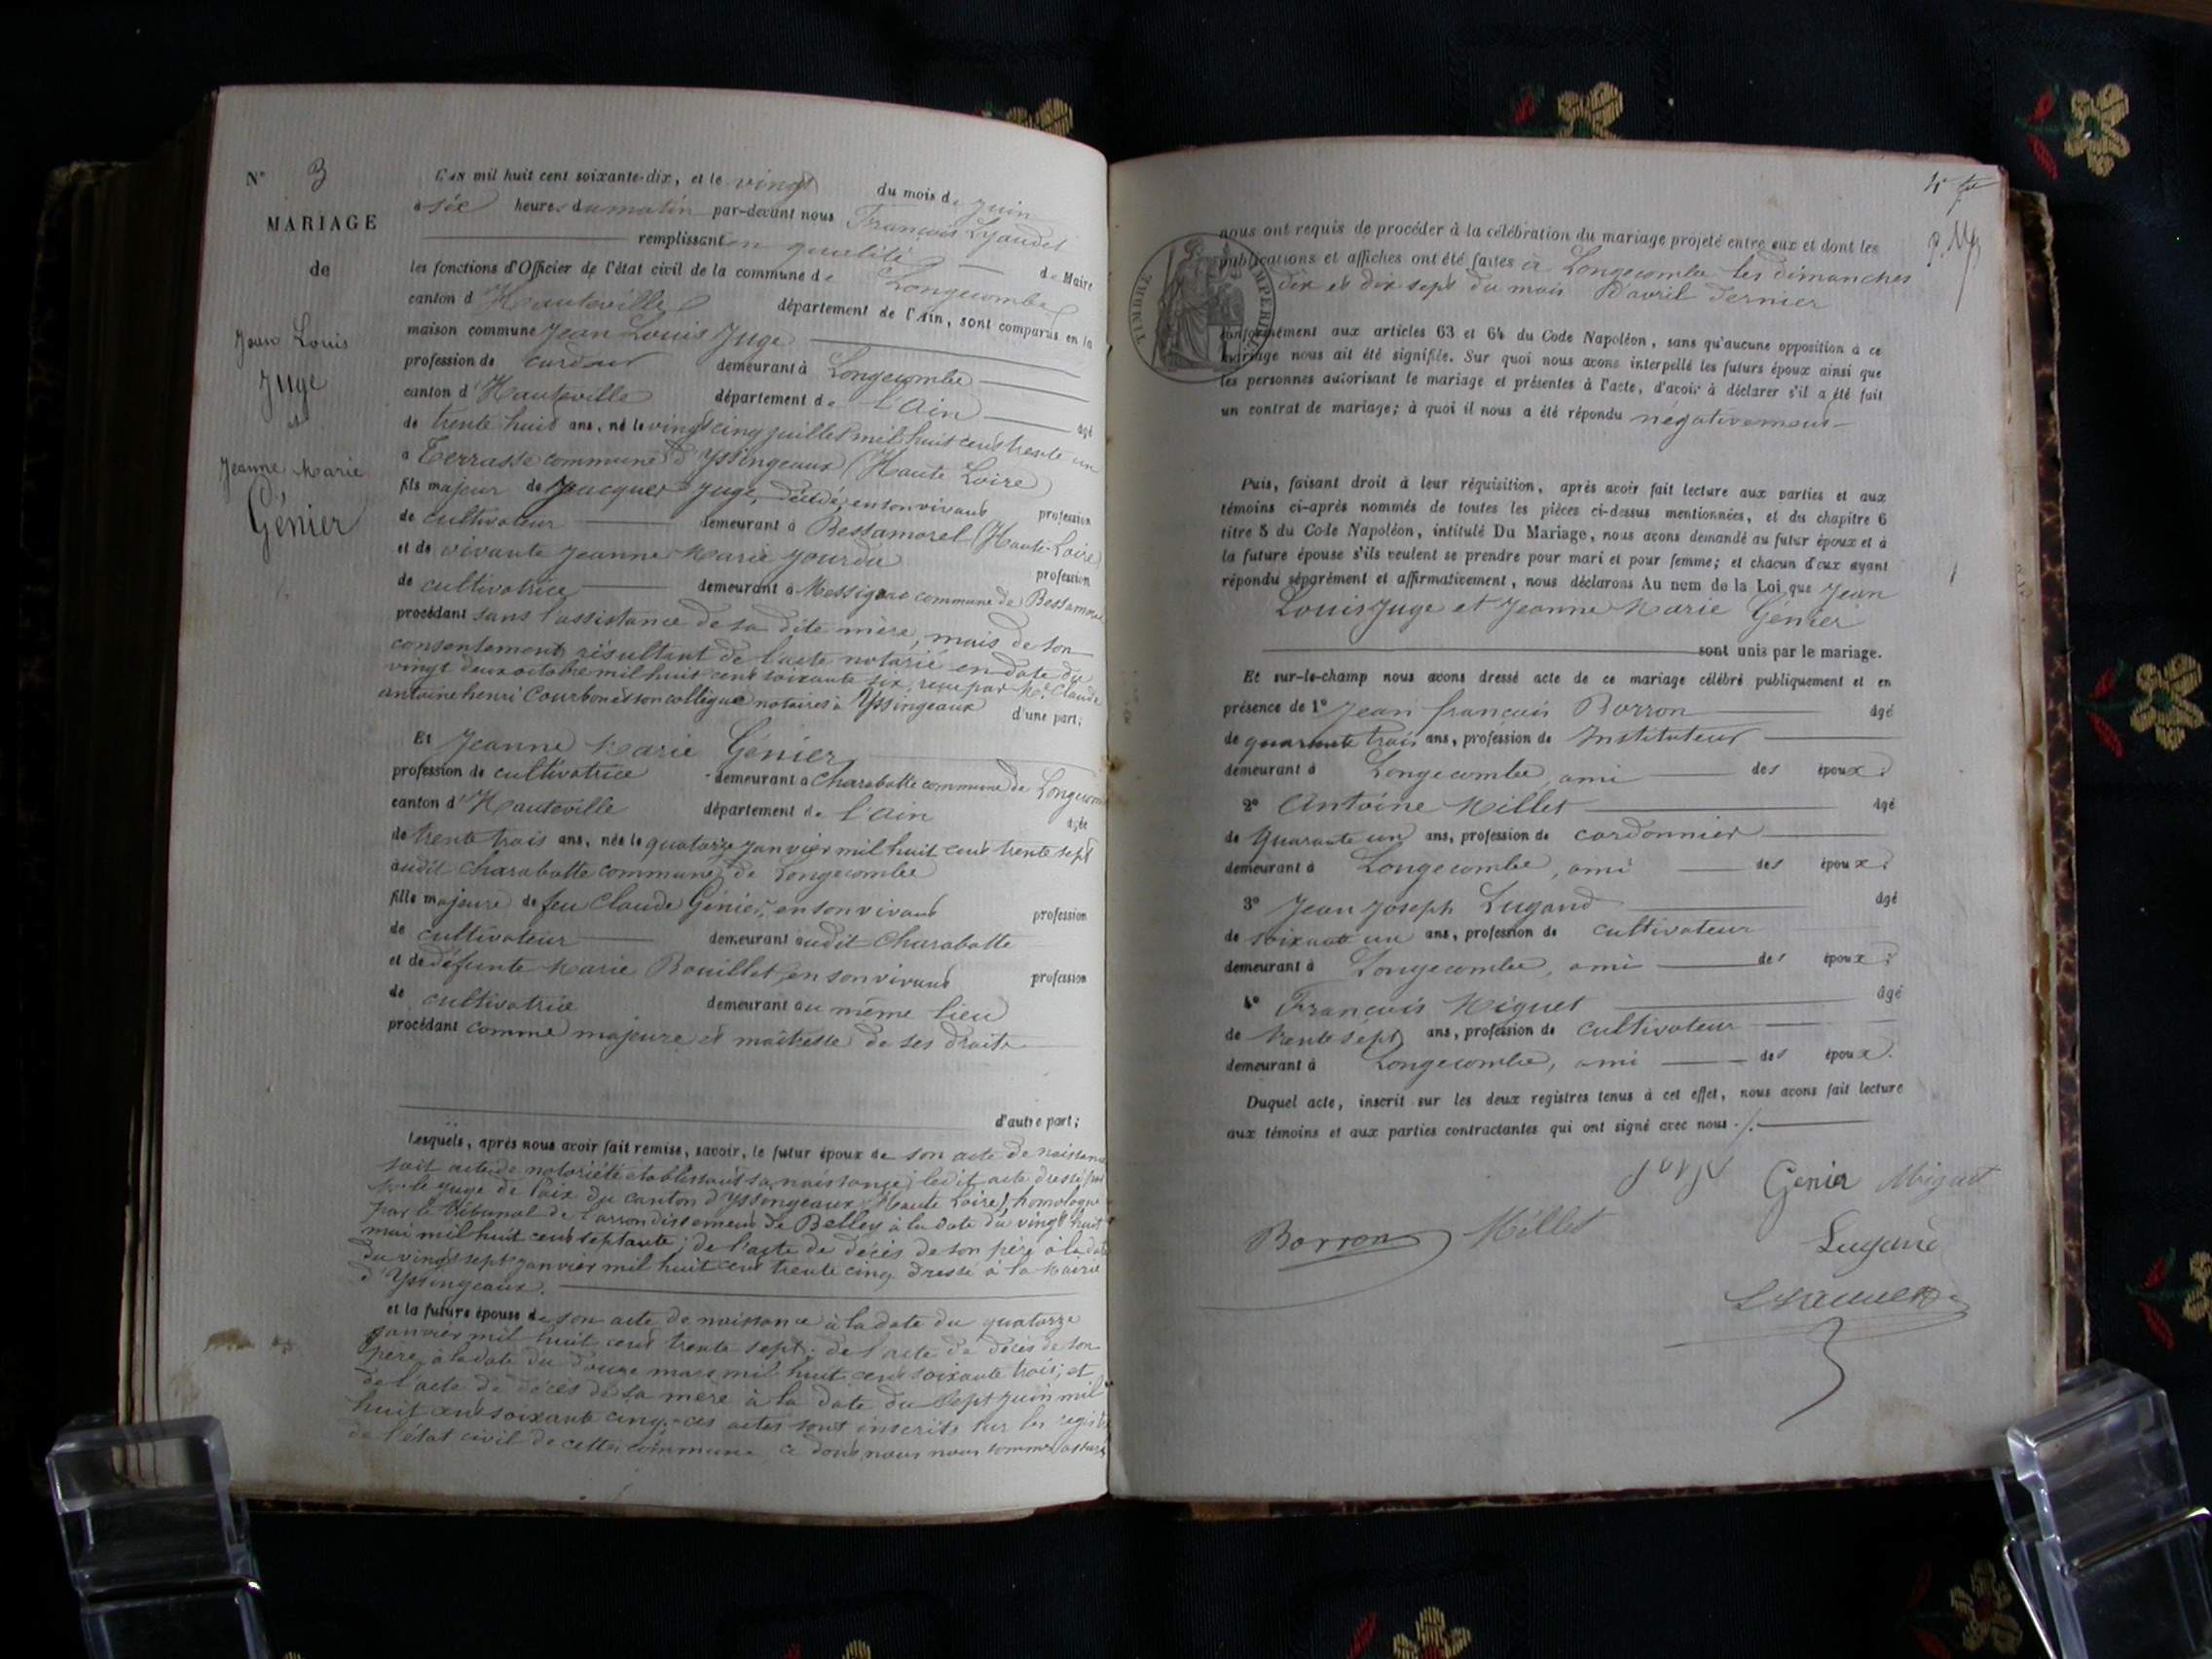 N° 3
MARIAGE
de
Jean Louis
Juge
et
Jeanne Marie
Génier
L'an mil huit cent soixante-dix, et le vingt du mois de juin
à six heures du matin par-devant nous François Lyaudet
remplissant en qualité de Maire
les fonctions d'Officier de l'état civil de la commune de Longecombe
canton d'Hauteville département de l'Ain, sont comparus en la
maison commune Jean Louis Juge
profession de demeurant à Longecombe
canton d'Hauteville département de l'Ain âgé
de trente huit ans, né le vingt cinq juillet mil huit cent trente un
à Terrasse commune d'Yssingeaux (Haute Loire)
fils majeur de Jacques Juge, décédé, en son vivant profession
de cultivateur demeurant à Bessamorel (Haute-Loire)
et de vivante Jeanne Marie Jourda profession
de cultivatrice demeurant à commune de Bessamorel
procédant sans l'assistance de sa dite mère, mais de son
consentement résultant de l'acte notarié en date du
vingt deux octobre mil huit cent soixante six, reçu par Me Claude
antoine henri Courbon et son collègue notaires à Yssingeaux d'une part;
Et Jeanne Marie Génier
profession de cultivatrice demeurant à Charabotte commune de Longecom
canton d'Hauteville département de l'Ain âgée
de trente trois ans, née le quatorze janvier mil huit cent trente sept
audit Charabotte commune de Longecombe
fille majeure de feu Claude Génier, en son vivant profession
de cultivateur demeurant audit Charabotte
et de défunte Marie Bouillet, en son vivant profession
de cultivatrice demeurant au même lieu
procédant comme majeure et maîtresse de ses droits
d'autre part;
Lesquels, après nous avoir fait remise, savoir, le futur époux de son acte de naissance
soit acte de notoriété établissant sa naissance; ledit acte dressé par
Mr le juge de Paix du canton d'Yssingeaux (Haute Loire), homologué
par le tribunal de l'arrondissement de Belley à la date du vingt huit
mai mil huit cent septante; de l'acte de décès de son père à la date
du vingt sept janvier mil huit cent trente cinq dressé à la Mairie
d'Yssingeaux.
et la future épouse de son acte de naissance à la date du quatorze
janvier mil huit cent trente sept; de l'acte de décès de son
père, à la date du douze mars mil huit cent soixante trois; et
de l'acte de décès de sa mère à la date du sept juin mil
huit cent soixante cinq; ces actes sont inscrits sur les registres
de l'état civil de cette commune, ce dont nous nous sommes assurés
nous ont requis de procéder à la célébration du mariage projeté entre eux et dont les
publications et affiches ont été faites à Longecombe les dimanches
dix et dix sept du mois d'avril dernier
TIMBRE IMPERIAL
conformément aux articles 63 et 64 du Code Napoléon, sans qu'aucune opposition à ce
mariage nous ait été signifiée. Sur quoi nous avons interpellé les futurs époux ainsi que
les personnes autorisant le mariage et présentes à l'acte, d'avoir à déclarer s'il a été fait
un contrat de mariage; à quoi il nous a été répondu négativement
Puis, faisant droit à leur réquisition, après avoir fait lecture aux parties et aux
témoins ci-après nommés de toutes les pièces ci-dessus mentionnées, et du chapitre 6
titre 5 du Code Napoléon, intitulé Du Mariage, nous avons demandé au futur époux et à
la future épouse s'ils veulent se prendre pour mari et pour femme; et chacun d'eux ayant
répondu séparément et affirmativement, nous déclarons Au nom de la Loi que Jean
Louis Juge et Jeanne Marie Génier
sont unis par le mariage.
Et sur-le-champ nous avons dressé acte de ce mariage célébré publiquement et en
présence de 1° Jean françois Borron âgé
de quarante trois ans, profession de Instituteur
demeurant à Longecombe, ami des époux;
2° Antoine Millet âgé
de Quarante un ans, profession de cordonnier
demeurant à Longecombe, ami des époux;
3° Jean Joseph Lugand âgé
de soixante un ans, profession de cultivateur
demeurant à Longecombe, ami des époux;
4° François Miguet âgé
de trente sept ans, profession de cultivateur
demeurant à Longecombe, ami des époux.
Duquel acte, inscrit sur les deux registres tenus à cet effet, nous avons fait lecture
aux témoins et aux parties contractantes qui ont signé avec nous ./.
Juge Génier Miguet
Borron Millet
Lugand
Lyaudet